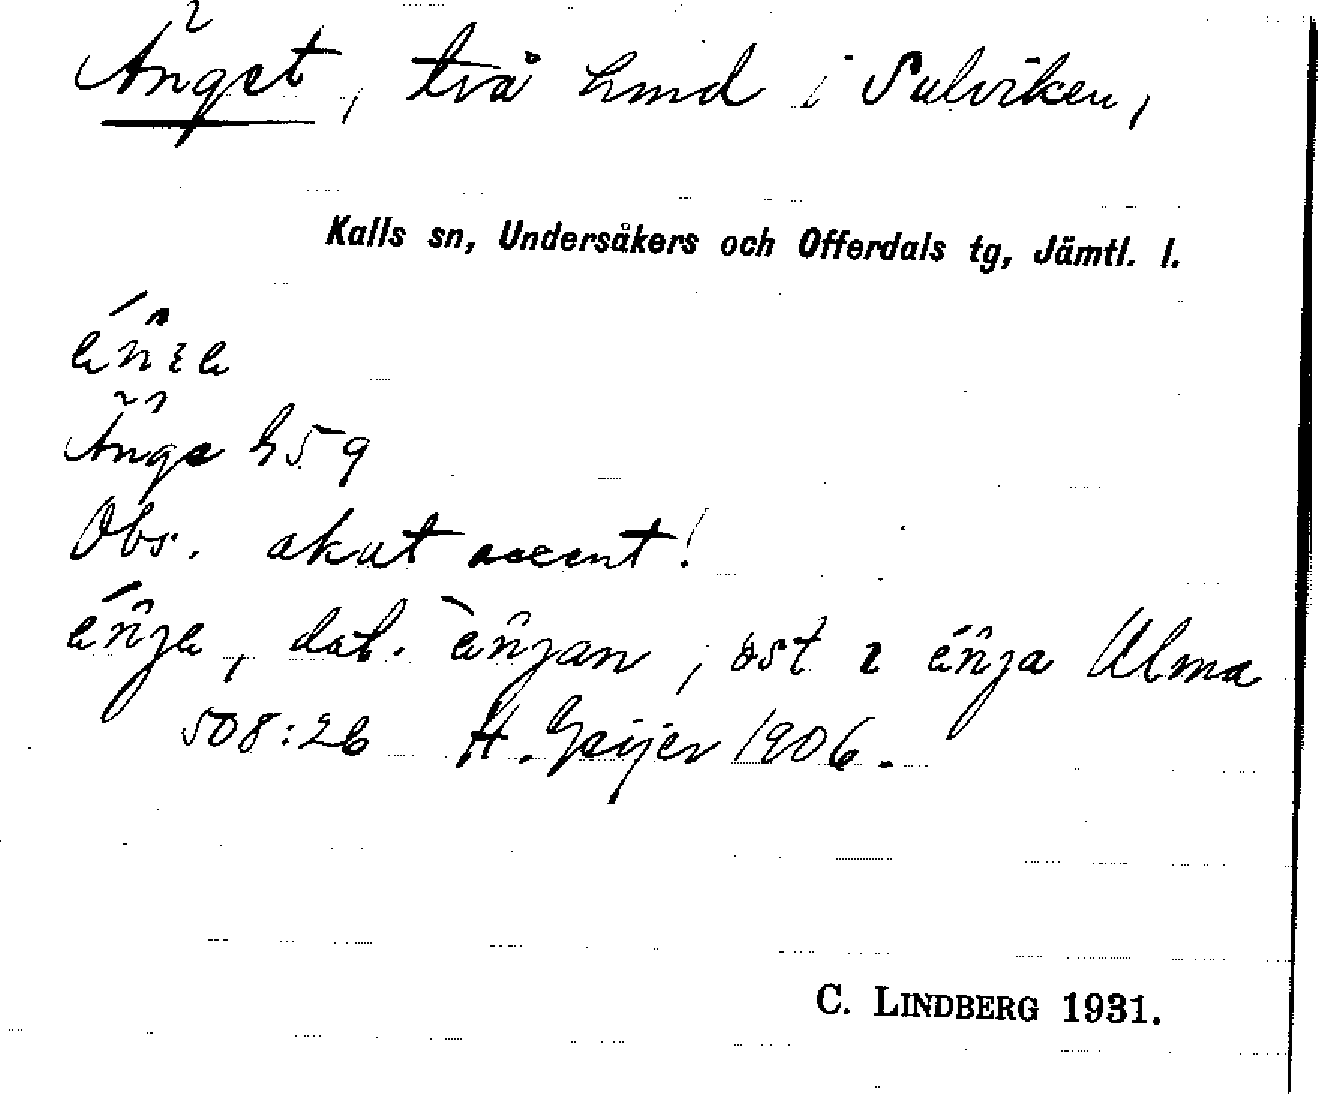 Änget, två hmd i Sulviken,
Kalls sn, Undersåkers och Offerdals tg, Jämtl. l.
Änge h59
Obs. akut accent!
dat. öst Ulma
508:26 H. Geijer 1906.
C. LINDBERG 1931.